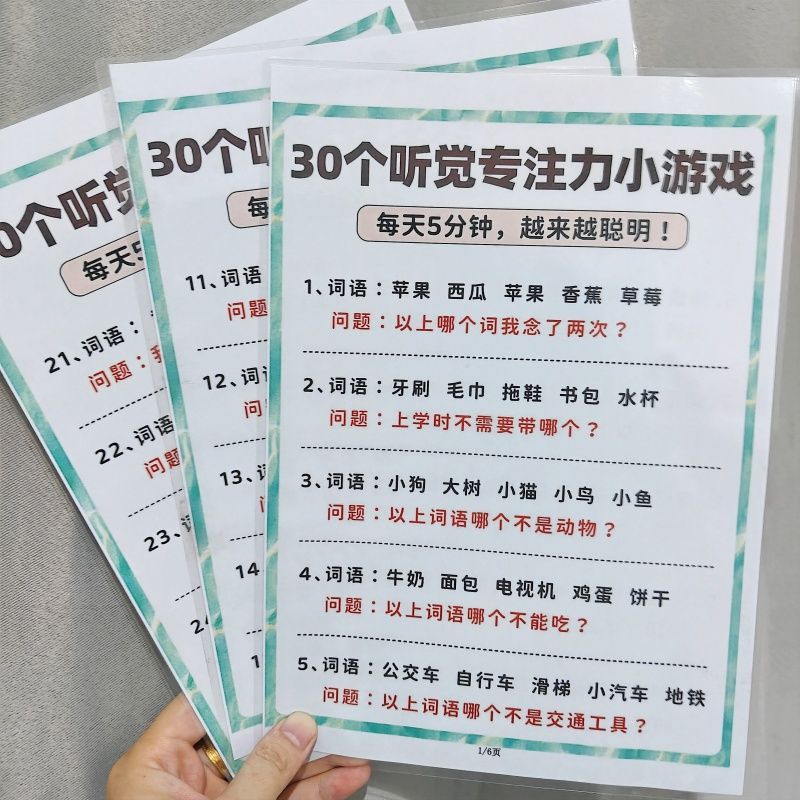 30个听觉专注力小游戏
每天5分钟，越来越聪明！
1、词语：苹果 西瓜 苹果 香蕉 草莓
问题：以上哪个词我念了两次？
2、词语：牙刷 毛巾 拖鞋 书包 水杯
问题：上学时不需要带哪个？
3、词语：小狗 大树 小猫 小鸟 小鱼
问题：以上词语哪个不是动物？
4、词语：牛奶 面包 电视机 鸡蛋 饼干
问题：以上词语哪个不能吃？
5、词语：公交车 自行车 滑梯 小汽车 地铁
问题：以上词语哪个不是交通工具？
1/6页
30个听
每
11、词语
问题
12、词
问
13、词
14
0个听觉
每天5
21、词语：
问题：
22、词语
问题
23、